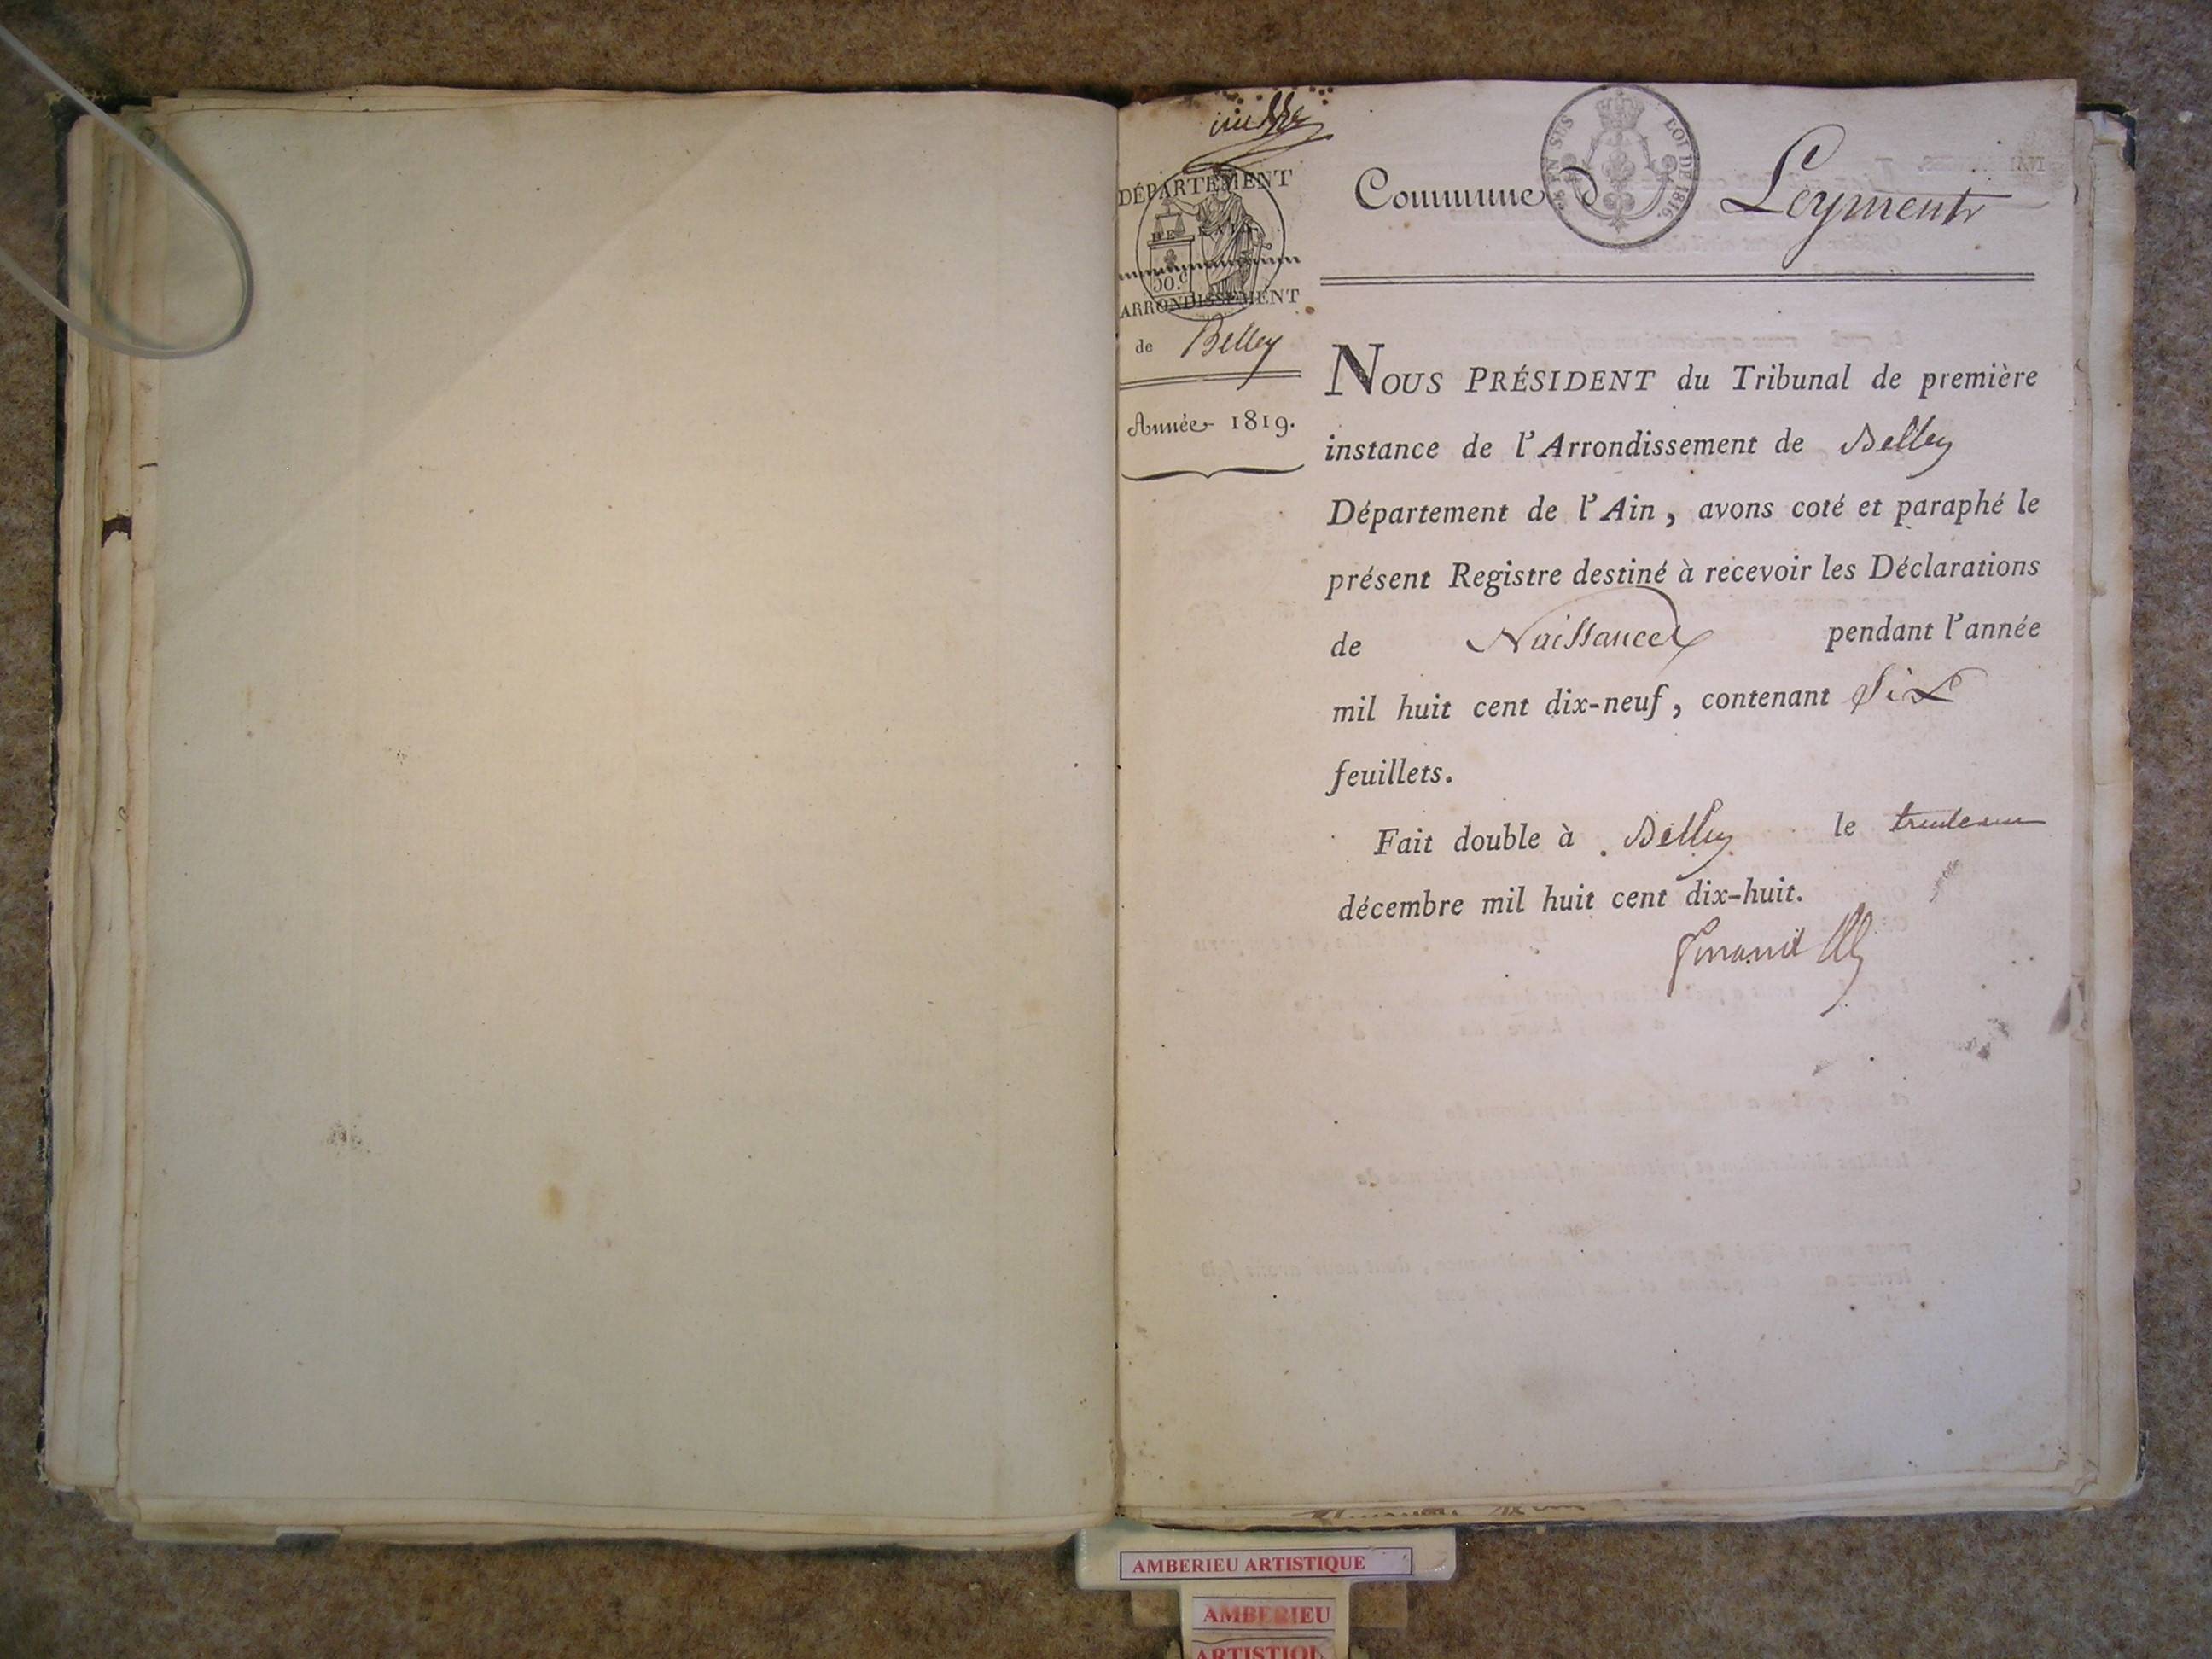 DÉPARTEMENT
DE L'AIN
ARRONDISSEMENT
de Belley
Année 1819.
EN SUS
LOI DE 1816.
Commune de Leyment
NOUS PRÉSIDENT du Tribunal de première
instance de l'Arrondissement de Belley
Département de l'Ain, avons coté et paraphé le
présent Registre destiné à recevoir les Déclarations
de Naissances pendant l'année
mil huit cent dix-neuf, contenant Six
feuillets.
Fait double à Belley le trente un
décembre mil huit cent dix-huit.
AMBERIEU ARTISTIQUE
AMBERIEU